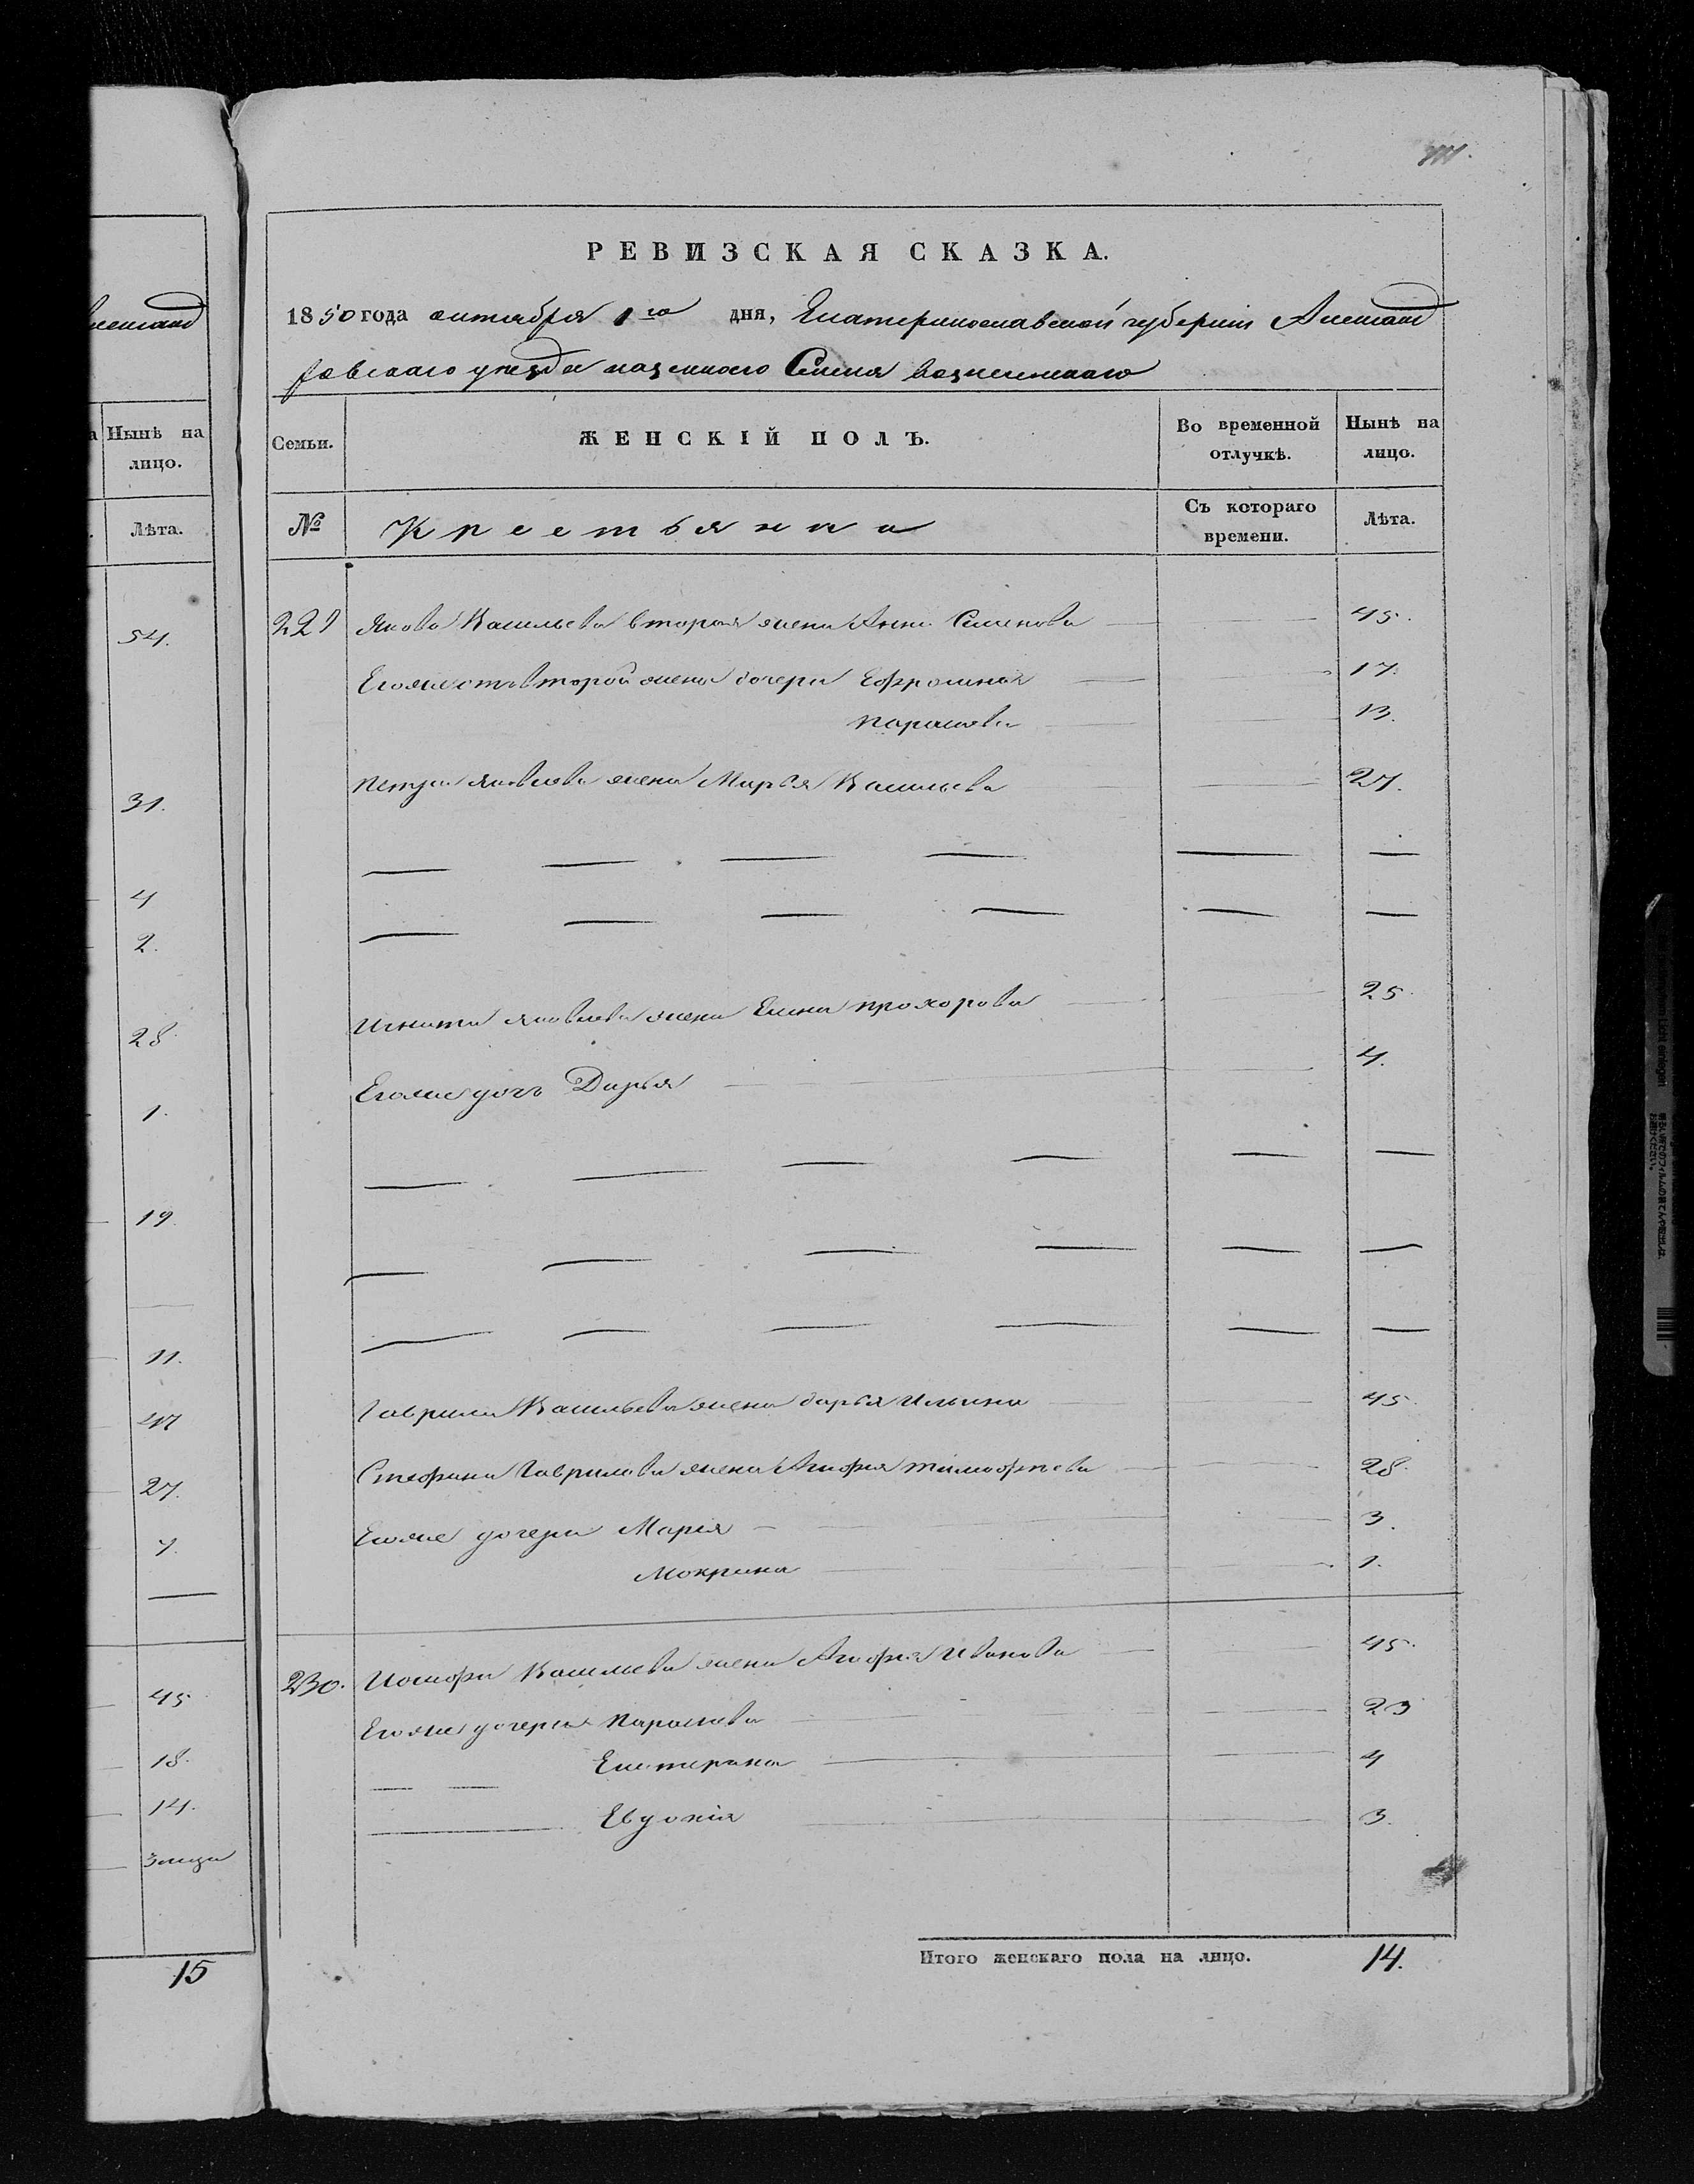 неканд
Нынѣ на
лицо.
Лѣта.
54.
31.
4
2.
28.
1.
19.
11.
47
27.
7.
45
18.
14.
15
РЕВИЗСКАЯ СКАЗКА.
1850 года октября 1го дня, Екатеринославской губернiи Александ
ровскаго уезда казенного Селенiя вознесенскаго
Семьи.
ЖЕНСКIЙ ПОЛЪ.
Во временной
отлучкѣ.
Нынѣ на
лицо.
№
Крестьянка
Съ котораго
времени.
Лѣта.
229 Якова Васильева вторая жена Анна Семенова 45.
Егоже отъ второй жены дочери Ефросинья 17.
параскева 13.
петра яковлева жена Марья Васильева 27.
Игната яковлева жена Елена прохорова 25.
Егоже дочь Дарья 4.
Гаврила Васильева жена дарья Ильина 45.
Стефана Гаврилова жена Агафья тимофѣева 28.
Егоже дочери Марья 3.
Мокрина 1.
230. Иосифа Васильева жена Агафья Иванова 45.
Егоже дочери Параскева 23
Екатерина 4
Евдокiя 3.
Итого женскаго пола на лицо. 14.